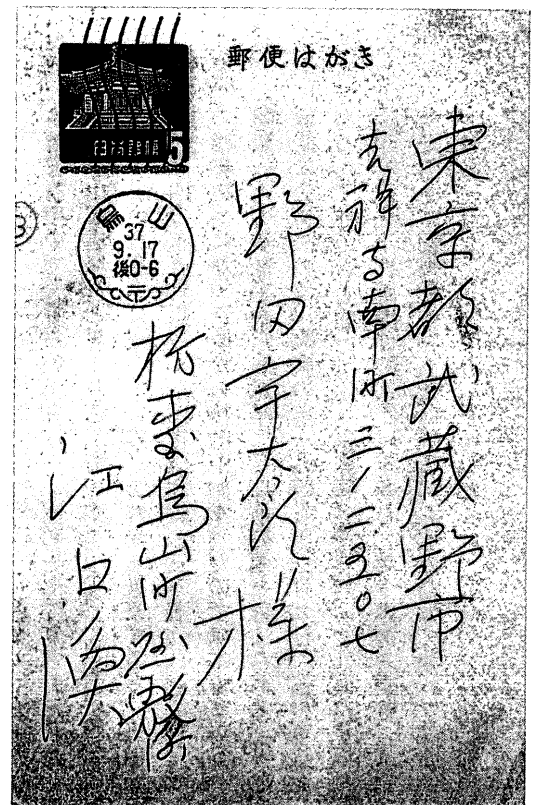 郵便はがき
日本郵便 5
烏山
37
9.17
後0-6
東京都武蔵野市
吉祥寺南町三ノ二五〇七
野田宇太郎様
烏山町
江口渙